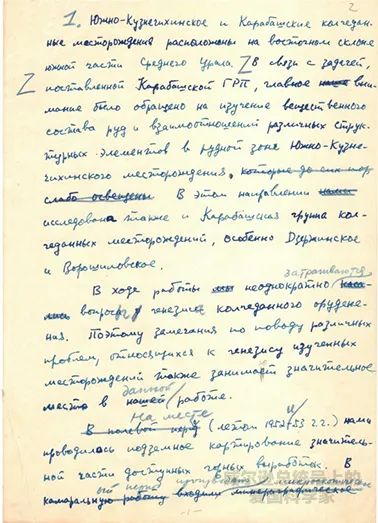 2
1. Южно-Кузнечихинское и Карабашские колчедан-
ные месторождения расположены на восточном склоне
южной части Среднего Урала. В связи с задачей,
поставленной Карабашской ГРП, главное вни-
мание было обращено на изучение вещественного
состава руд и взаимоотношений различных струк-
турных элементов в рудной зоне Южно-Кузне-
чихинского месторождения, которые до сих пор
слабо освещены. В этом направлении нами
исследована также и Карабашская группа кол-
чеданных месторождений, особенно Дзержинское
и Ворошиловское.
затрагиваются
В ходе работы мы неоднократно
вопросы генезиса колчеданного орудене-
ния. Поэтому замечания по поводу различных
проблем, относящихся к генезису изученных
месторождений также занимает значительное
данной
место в нашей работе.
На месте
В полевой период (летом 1952 и 53 г.г.) нами
проводилось подземное картирование значитель-
ной части доступных горных выработок. В
микроскопическое
камеральную работу входили минераграфическое
-1-